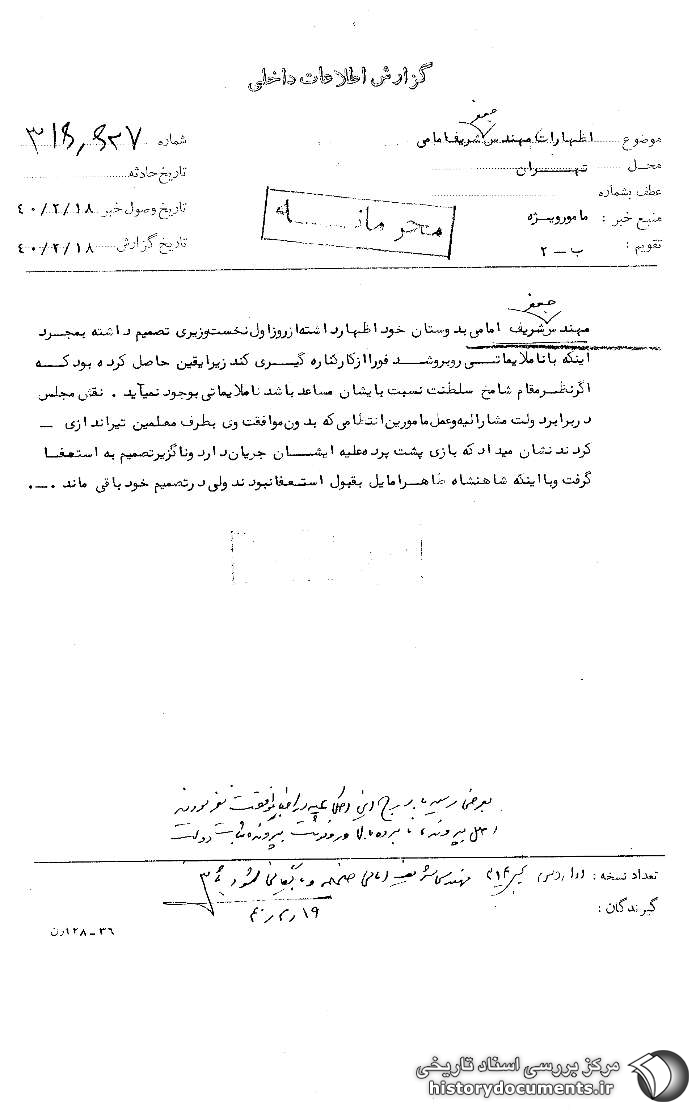 گزارش اطلاعات داخلی
جعفر
موضوع اظهارات مهندس شریف امامی
محل تهران
عطف بشماره
منبع خبر : مامورویژه
تقویم : ب - ۲
شماره
تاریخ حادثه
تاریخ وصول خبر ۴۰/۲/۱۸
تاریخ گزارش ۴۰/۲/۱۸
محرمانه
جعفر
مهندس شریف امامی بدوستان خود اظهارداشته ازروزاول نخست وزیری تصمیم داشته بمجرد
اینکه باناملایماتی روبروشد فوراازکارکناره گیری کند زیرایقین حاصل کرده بودکه
اگرنظرمقام شامخ سلطنت نسبت بایشان مساعد باشد ناملایماتی بوجود نمیآید . نقش مجلس
دربرابردولت مشارالیه وعمل مامورین انتظامی که بدون موافقت وی بطرف معلمین تیراندازی -
کردند نشان میداد که بازی پشت پرده علیه ایشان جریان دارد وناگزیرتصمیم به استعفا
گرفت وبااینکه شاهنشاه ظاهرامایل بقبول استعفانبودند ولی درتصمیم خود باقی ماند .-.
تعداد نسخه :
گیرندگان :
۱۹/۲/۴۰
۳۶-۱۲۸رن
مرکز بررسی اسناد تاریخی
historydocuments.ir